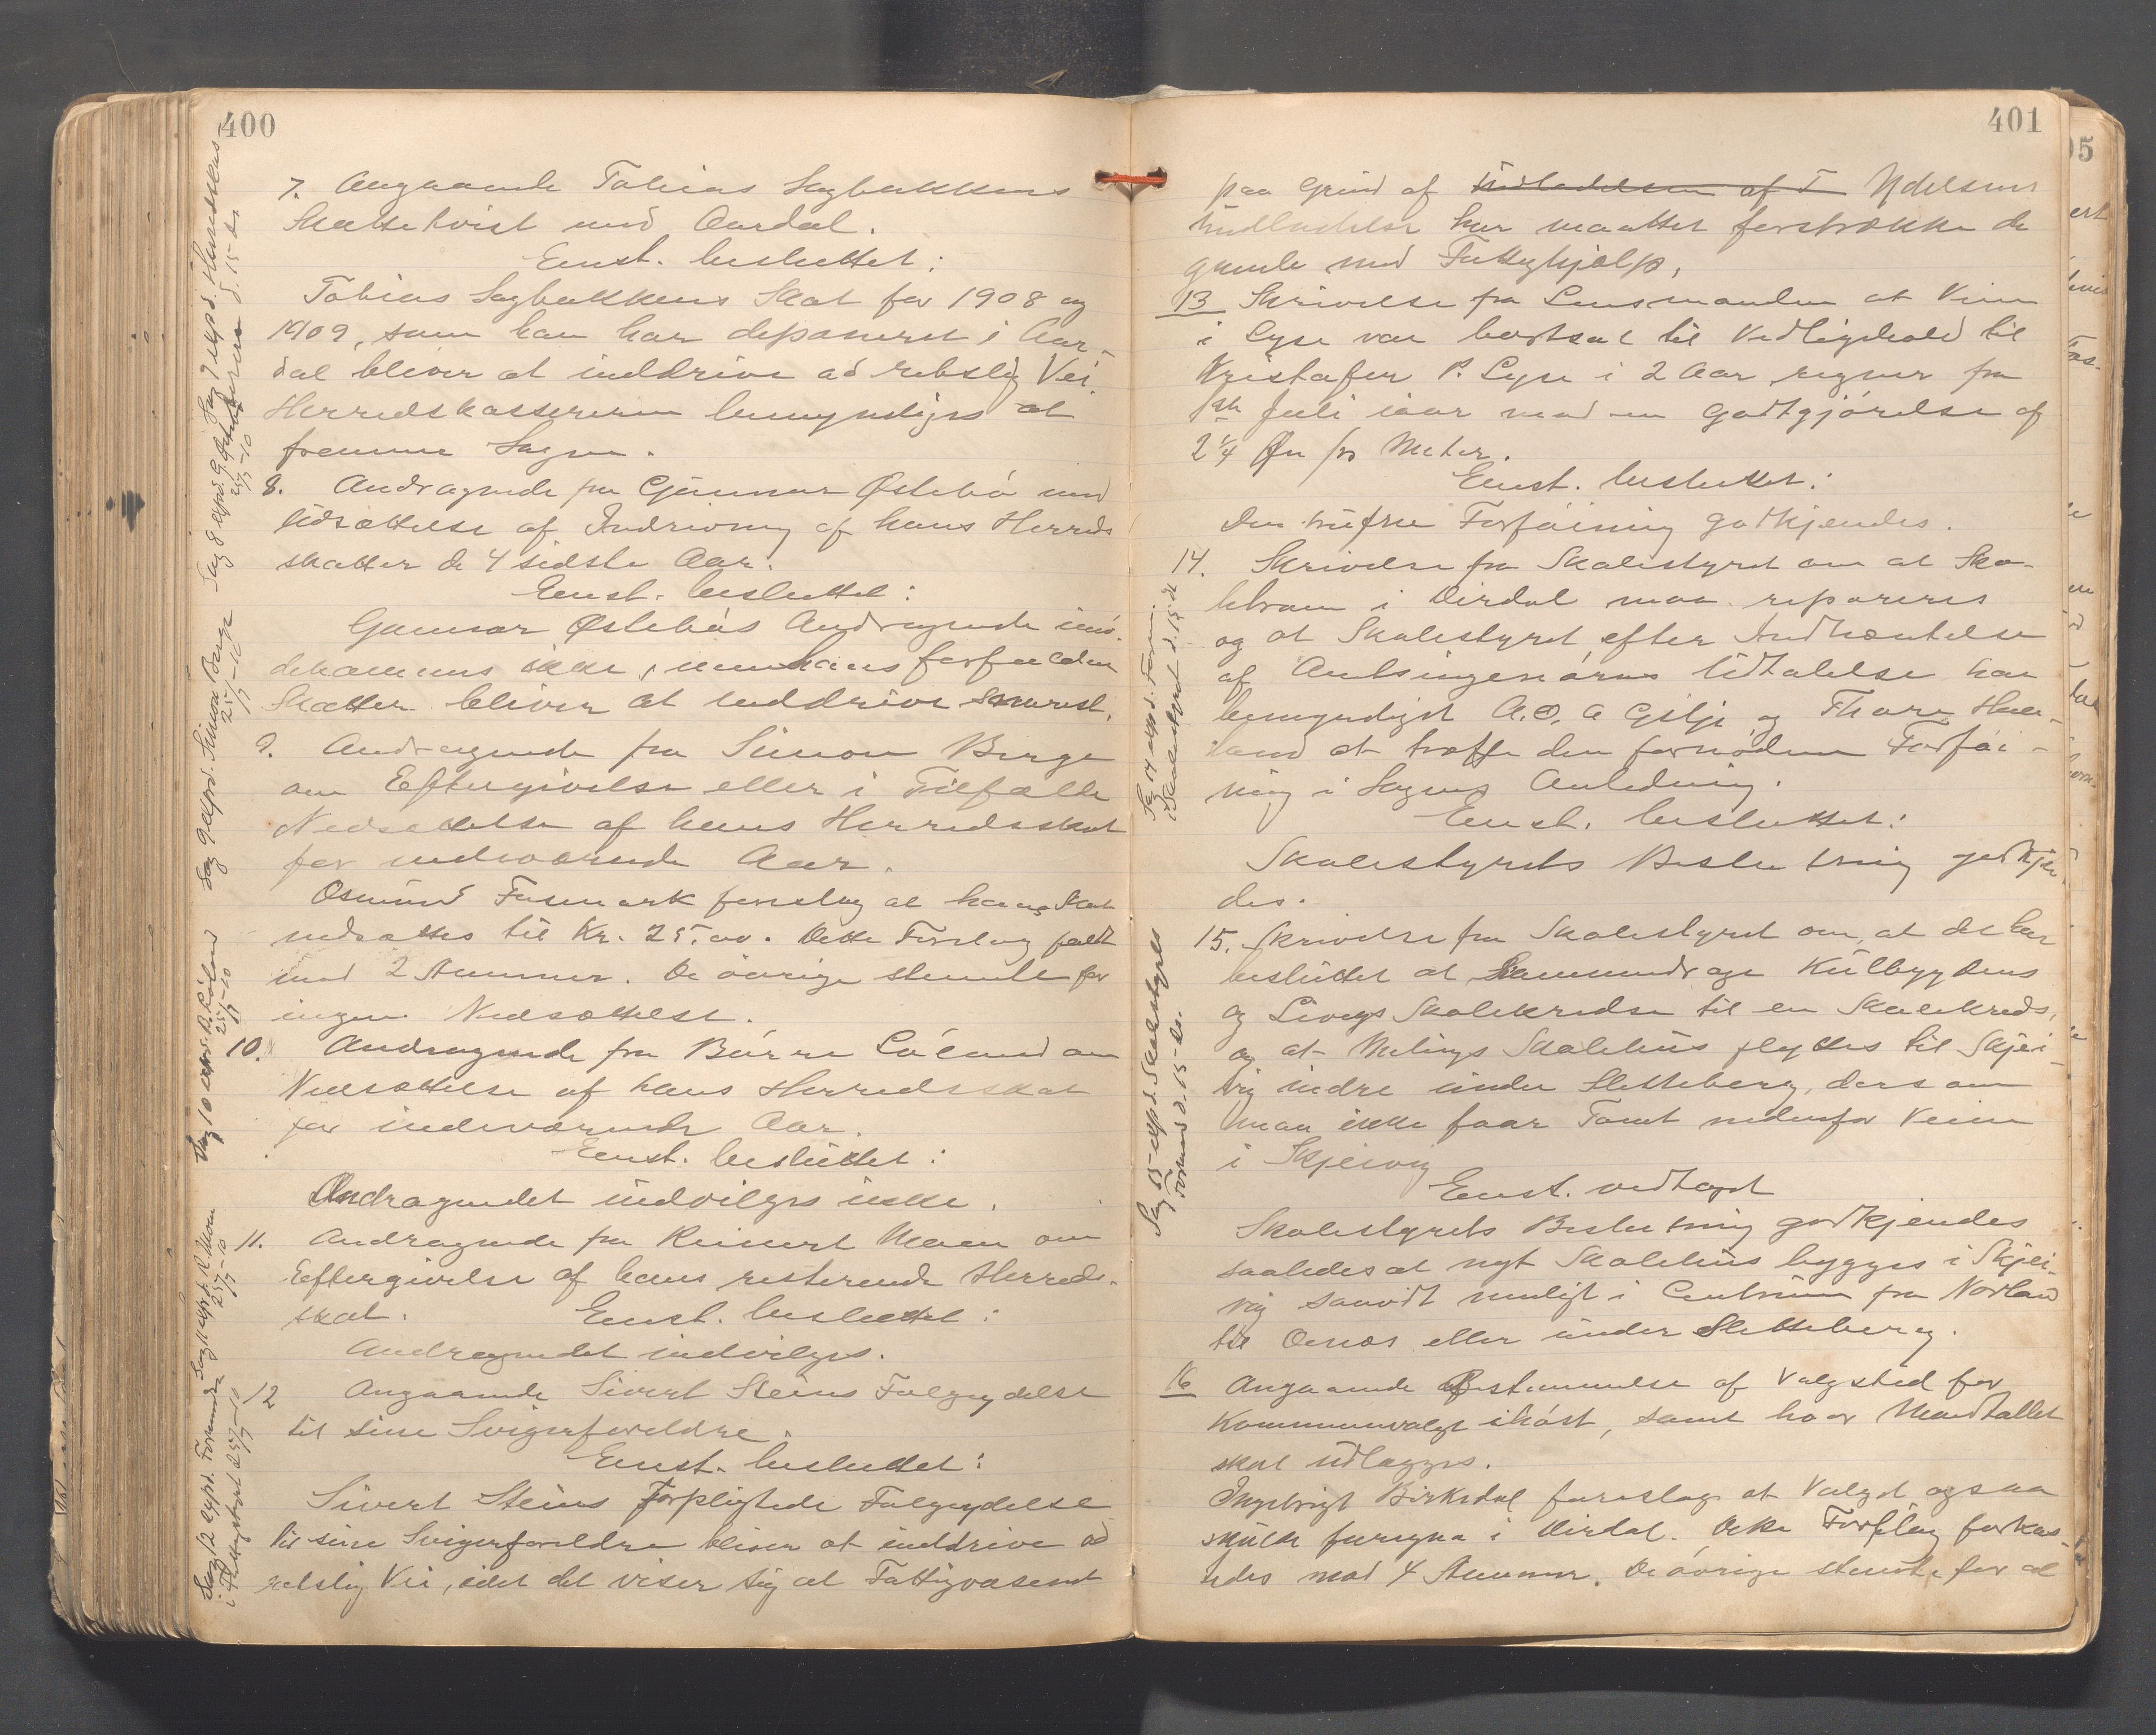 400
7. Angaaende Tobias Sagbakkens
Skattetvist med Aardal.
Enst. besluttet:
Tobias Sagbakkens Skat for 1908 og
1909, som han har deponeret i Aar-
dal bliver at inddrive ad retslig Vei.
Herredskassereren bemyndiges at
fremme Sagen.
8. Andragende fra Gunnar Østebö med
Udsættelse af Inddrivning af hans Herreds
skatter de 4 sidste Aar.
Enst. besluttet:
Gunnar Østebös Andragende imö-
dekommes ikke, men hans forfaldne
Skatter bliver at inddrive snarest.
9. Andragende fra Simon Berge
om Eftergivelse eller i Tilfælde
Nedsættelse af hans Herredsskat
for indeværende Aar.
Osmund Fosmark foreslog at hans Skat
nedsættes til Kr. 25.00. Dette Forslag faldt
mod 2 Stemmer. De övrige stemte for
ingen Nedsættelse.
10. Andragende fra Börre Löland om
Nedsættelse af hans Herredsskat
for indeværende Aar.
Enst. besluttet:
Andragendet indvilges ikke.
11. Andragende fra Reinert Moen om
Eftergivelse af hans resterende Herreds-
skat. Enst. besluttet:
Andragendet indvilges.
12 Angaaende Sivert Steins Folgeydelse
til sine Svigerforeldre.
Enst. besluttet:
Sivert Steins Forpligtede Folgeydelse
til sine Svigerforeldre bliver at inddrive ad
retslig Vei, idet det viser sig at Fattigvæsenet
Sag 7 exp d. Herredskas-
sereren d. 15- ds
Sag 8 exp d. G. Østebö
25/7-10
Sag 9 exp d. Simon Berge
25/7-10
Sag 10 exp d. B. Löland
25/7-10
Sag 11 exp d. R. Moen
25/7-10
Sag 12 exp d. Formand
i Fattigstyret 25/7-10
401
paa Grund af Undladelsen af F Ydelsens
Undladelse har maattet forstrække de
gamle med Fattighjælp.
13 Skrivelse fra Lensmanden at Veien
i Lyse var bortsat til Vedligehold til
Kristofer P. Lyse i 2 Aar regnet fra
1ste Juli iaar mod en Godtgjörelse af
2 1/4 Öre pr Meter.
Enst. besluttet:
Den trufne Forföining godkjendes.
14. Skrivelse fra Skolestyret om at Sko-
lebroen i Dirdal maa repareres
og at Skolestyret efter Indhentelse
af Amtsingeniörens Udtalelse har
bemyndiget A. O. A Gilje og Thore Hau-
land at træffe den fornödne Forföi-
ning i Sagens Anledning.
Enst. besluttet:
Skolestyrets Beslutning godkjen-
des.
15. Skrivelse fra Skolestyret om, at det har
besluttet at sammendrage Kulbygdens
og Levegs Skolekredse til en Skolekreds,
og at Melings Skolehus flyttes til Skjei-
vig indre under Sletteberg, dersom
man ikke faar Tomt nedenfor Veien
i Skjeivig
Enst. vedtaget
Skolestyrets Beslutning godkjendes
saaledes at nyt Skolehus bygges i Skjei-
vig saavidt muligt i Centrum fra Norland
til Oenæs eller under Sletteberg.
16 Angaaende Bestemmelse af Valgsted for
Kommunevalget ihöst, samt hvor Mandtallet
skal udlægges.
Ingebrigt Birkedal foreslog at Valget ogsaa
skulde foregaa i Dirdal. Dette Forslag forkas-
tedes mod 4 Stemmer. De övrige stemte for at
Sag 14 exp d. Form.
i Skolestyret d. 15 ds
Sag 15 exp d. Skolestyrets
Formand d. 15- ds.